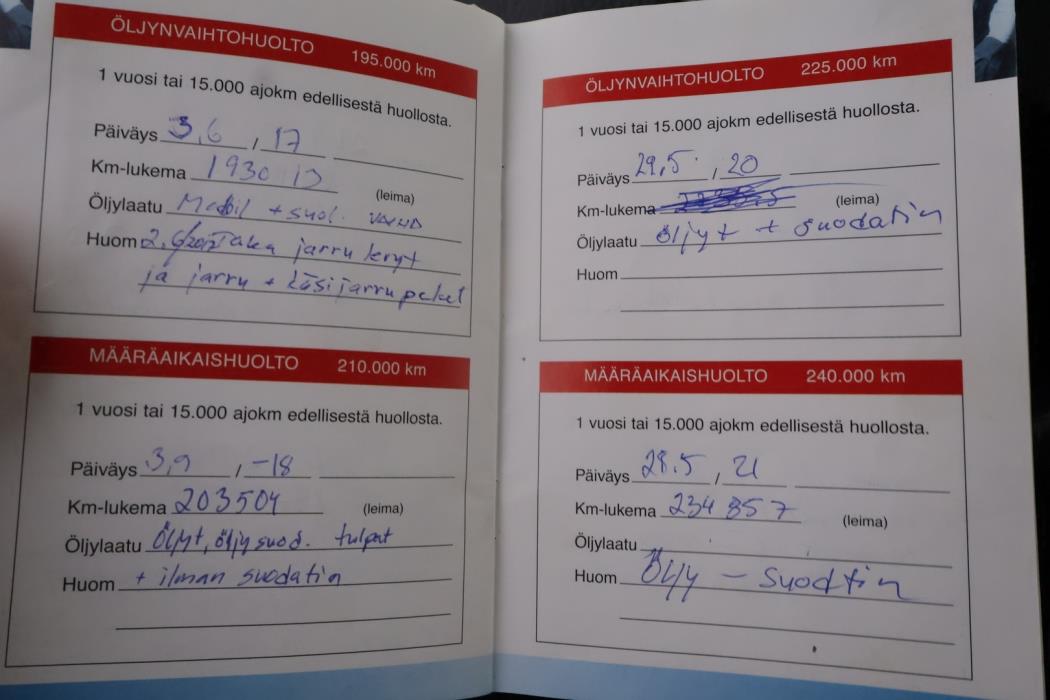 ÖLJYNVAIHTOHUOLTO 195.000 km
1 vuosi tai 15.000 ajokm edellisestä huollosta.
Päiväys 3,6 / 17
Km-lukema 1930
(leima)
Öljylaatu + suod.
Huom Taka jarru levyt
ja jarru + käsijarru
MÄÄRÄAIKAISHUOLTO 210.000 km
1 vuosi tai 15.000 ajokm edellisestä huollosta.
Päiväys 3,9 / -18
Km-lukema 203504
(leima)
Öljylaatu Öljyt, öljysuod. tulpat
Huom + ilman suodatin
ÖLJYNVAIHTOHUOLTO 225.000 km
1 vuosi tai 15.000 ajokm edellisestä huollosta.
Päiväys 29,5 , 20
Km-lukema
(leima)
Öljylaatu öljyt + suodatin
Huom
MÄÄRÄAIKAISHUOLTO 240.000 km
1 vuosi tai 15.000 ajokm edellisestä huollosta.
Päiväys 28.5 , 21
Km-lukema 234 857
(leima)
Öljylaatu
Huom Öljy - suodtin